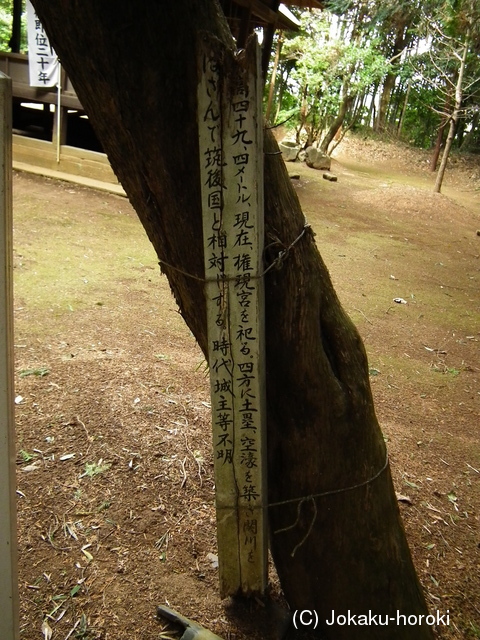 高四十九、四メートル、現在、権現宮を祀る、四方に土塁、空濠を築き関川を
はさんで筑後国と相対する、時代城主等不明
即位二十年
(C) Jokaku-horoki